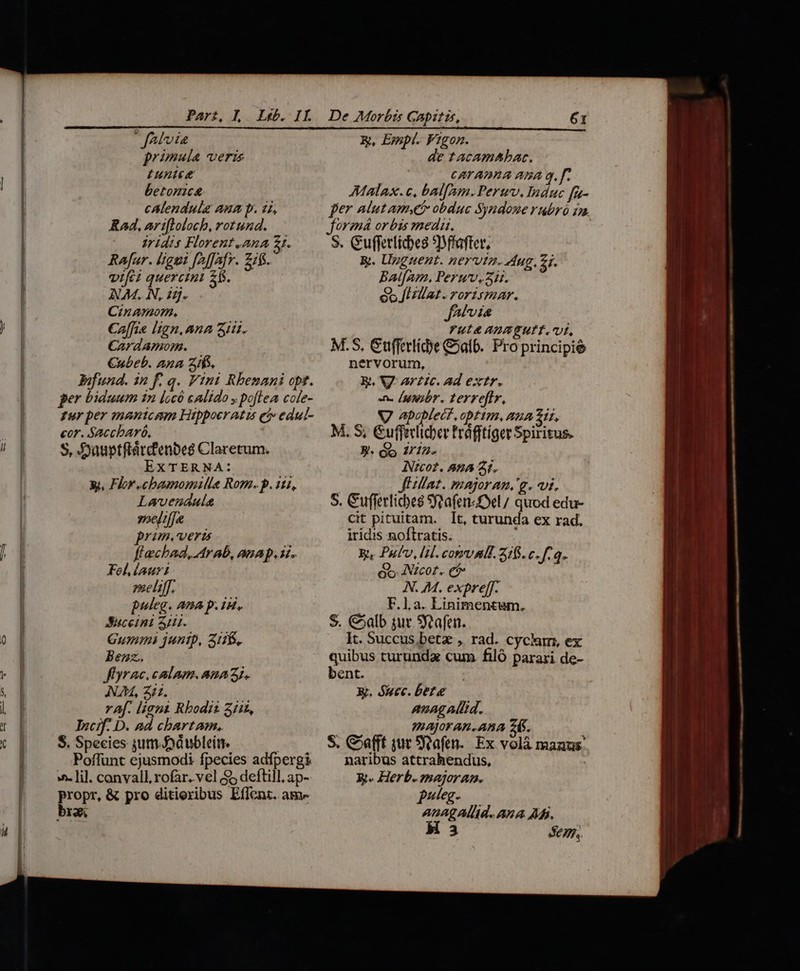 Part. I, Lib. II.
ſalviæ
primulæ veris
tunicæ
betonicæ
calendulæ ana p. ii,
Rad. ariſtoloch, rotund.
iridis Florent. ana ʒi.
Raſur. ligni ſaſſafr. ʒiß.
viſci quercini ʒß.
NM. N, iij.
Cinamom.
Caſſiæ lign. ana ʒiii.
Cardamom.
Cubeb. ana ʒiß,
Infund. in ſ. q. Vini Rhenani opt.
per biduum in locô calido, poſtea cole-
tur per manicam Hippocratis & edul-
cor. Saccharô.
S, Hauptſtärckendes Claretum.
EXTERNA:
℞, Flor. chamomillæ Rom. p. iii,
Lavendulæ
meliſſæ
prim. veris
ſtæchad, Arab, ana p. ii.
Fol, lauri
meliſſ.
puleg. ana p. iii,
Succini ʒiii.
Gummi junip, ʒiiß,
Benz,
ſtyrac, calam. ana ʒi.
NM, ʒii.
raſ. ligni Rhodii ʒiii,
Inciſ. D. ad chartam,
S. Species zum Häublein.
Poſſunt ejusmodi ſpecies adſpergi
lil. convall, roſar. vel deſtill. ap-
propr, & pro ditioribus Eſſent. am-
bræ,
De Morbis Capitis, 61
℞, Empl. Vigon.
de tacamahac.
caranna ana q. ſ.
Malax. c, balſam. Peruv. Induc ſu-
per alutam, & obduc Syndone rubrô in
formâ orbis medii.
S. Euſſerliches Pflaſter.
℞. Unguent. nervin. Aug. ʒi.
Balſam. Peruv. ʒii.
ſtillat. rorismar.
ſalviæ
rutæ ana gutt. vi,
M. S. Euſſerliche Salb. Pro principiô
nervorum,
℞. artic. ad extr.
lumbr. terreſtr,
apoplect. optim. ana ʒii,
M. S, Euſſerlicher kräfftiger Spiritus.
℞. irin.
Nicot. ana ʒi.
ſtillat. majoran. g. vi.
S. Euſſerliches Naſen-Oel / quod edu-
cit pituitam. It, turunda ex rad.
iridis noſtratis.
℞, Pulv, lil. convall. ʒiß. c. ſ. q.
Nicot. &
N. M. expreſſ.
F. l. a. Linimentum.
S. Salb zur Naſen.
It. Succus betæ, rad. cyclam, ex
quibus turundæ cum filô parari de-
bent.
℞. Succ. betæ
anagallid.
majoran. ana ʒß.
S. Safft zur Naſen. Ex volâ manus
naribus attrahendus,
℞. Herb. majoran.
puleg.
anagallid. ana Mß.
H 3 Sem,